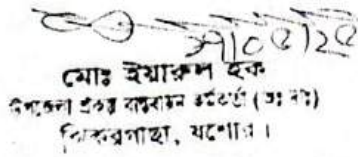 ২৭/০৫/২৫
মোঃ ইয়ারুল হক
উপজেলা প্রকল্প বাস্তবায়ন কর্মকর্তা (অঃ দাঃ)
ঝিকরগাছা, যশোর।